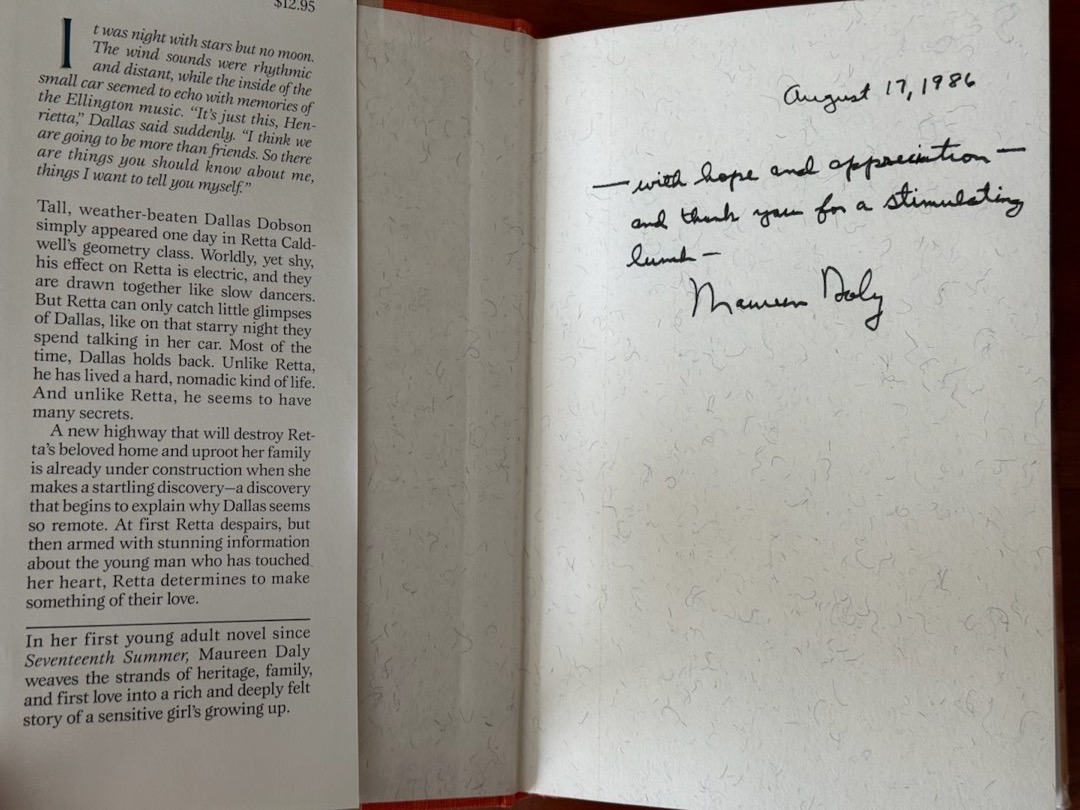 $12.95
It was night with stars but no moon.
The wind sounds were rhythmic
and distant, while the inside of the
small car seemed to echo with memories of
the Ellington music. “It’s just this, Hen-
rietta,” Dallas said suddenly. “I think we
are going to be more than friends. So there
are things you should know about me,
things I want to tell you myself.”
Tall, weather-beaten Dallas Dobson
simply appeared one day in Retta Cald-
well’s geometry class. Worldly, yet shy,
his effect on Retta is electric, and they
are drawn together like slow dancers.
But Retta can only catch little glimpses
of Dallas, like on that starry night they
spend talking in her car. Most of the
time, Dallas holds back. Unlike Retta,
he has lived a hard, nomadic kind of life.
And unlike Retta, he seems to have
many secrets.
A new highway that will destroy Ret-
ta’s beloved home and uproot her family
is already under construction when she
makes a startling discovery—a discovery
that begins to explain why Dallas seems
so remote. At first Retta despairs, but
then armed with stunning information
about the young man who has touched
her heart, Retta determines to make
something of their love.
In her first young adult novel since
Seventeenth Summer, Maureen Daly
weaves the strands of heritage, family,
and first love into a rich and deeply felt
story of a sensitive girl’s growing up.
August 17, 1986
— with hope and appreciation —
and thank you for a stimulating
lunch —
Maureen Daly